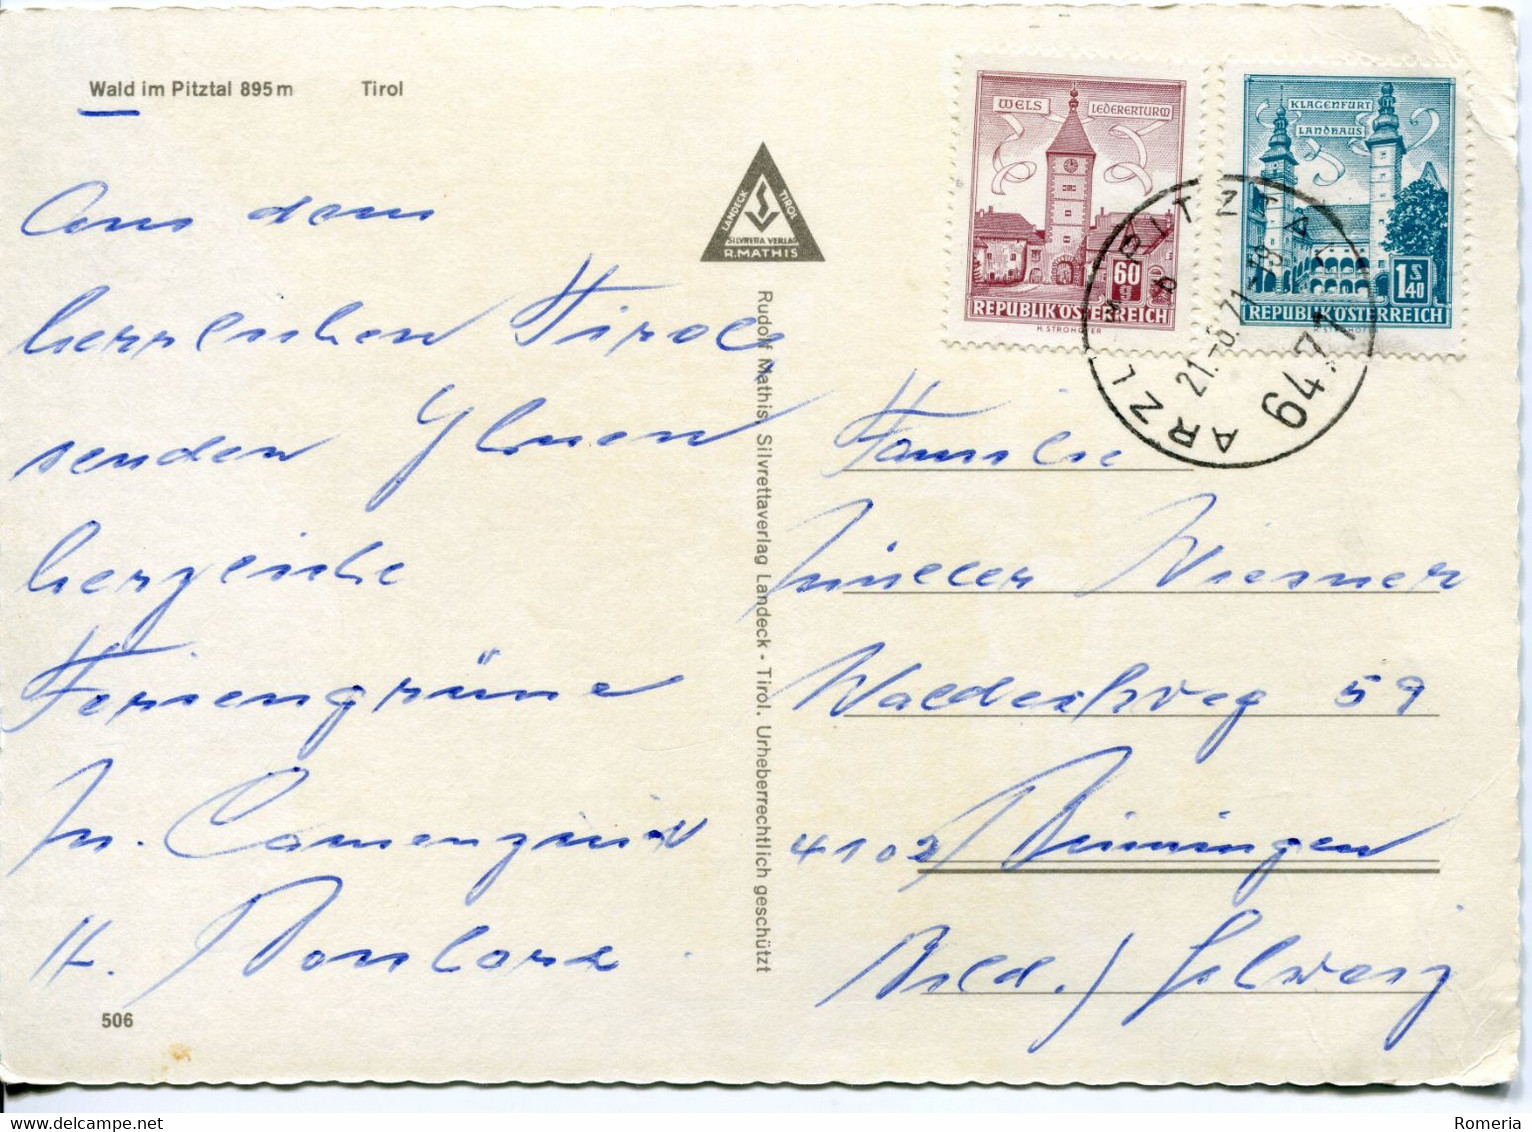 Wald im Pitztal 895 m Tirol
Aus dem
herrlichen Tirol
senden Ihnen
herzliche
Feriengrüsse
Camenzind
506
LANDECK
TIROL
SILVRETTA VERLAG
R. MATHIS
Rudolf Mathis, Silvrettaverlag Landeck - Tirol. Urheberrechtlich geschützt
WELS LEDERERTURM
60
g
REPUBLIK ÖSTERREICH
H. STROHOFER
KLAGENFURT
LANDHAUS
1 S 40
REPUBLIK ÖSTERREICH
H. STROHOFER
ARZL PITZTAL
21.-8.71-18
6471
Familie
Müller Wiesner
59
4102 Binningen
Bsld. / Schweiz
Romeria